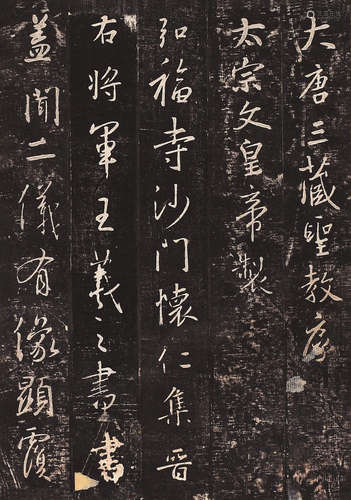 大唐三藏聖教序
太宗文皇帝製
弘福寺沙門懷仁集晉
右將軍王羲之書書
蓋聞二儀有像顯覆